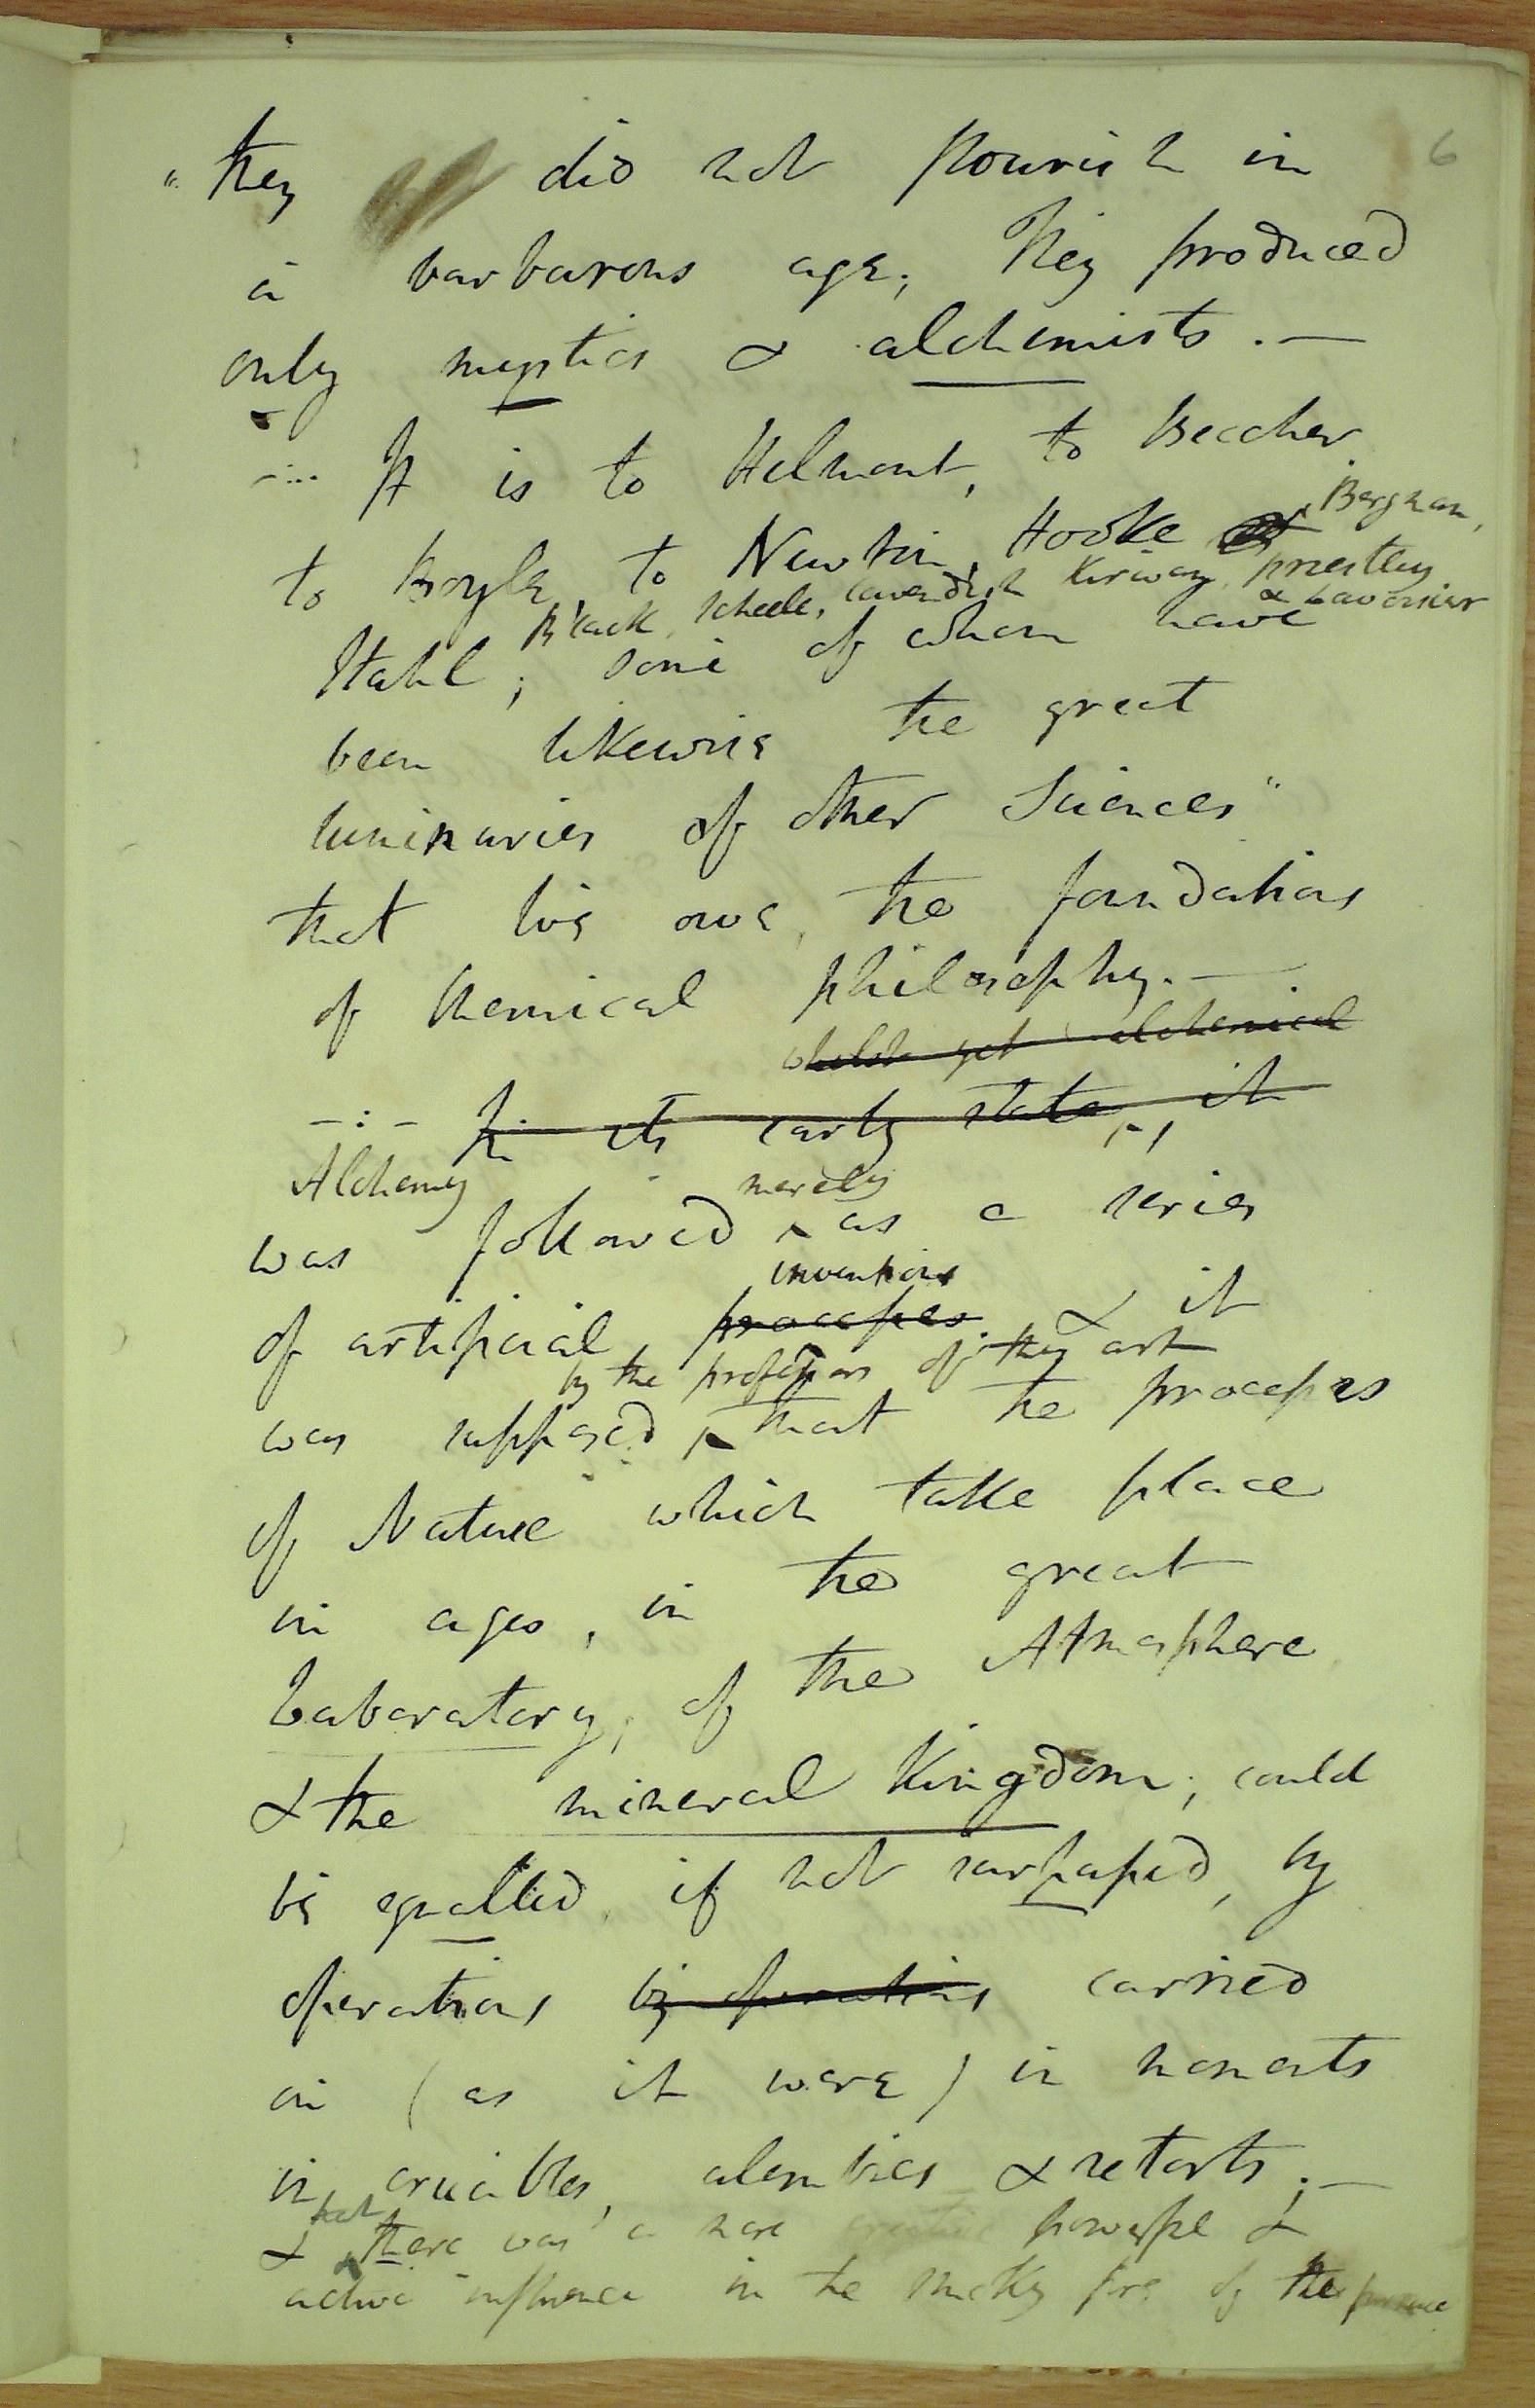 6
"they did not flourish in
a barbarous age; They produced
only mystics & alchemists. —
-... It is to Helmont, to Beccher
Bergman,
to Boyle, to Newton, Hooke priestley
Black, Scheele, Cavendish Kirwan, & Lavoisier
Stahl; some of whom have
been likewise the great
luminaries of other Sciences"
that we owe, the foundations
of Chemical philosophy. —
whilst yet alchemical
-:- In its early state, it
Alchemy merely
was followed ^ as a series
inventions
of artificial processes. & it
by the professors of the art
was supposed ^ that the processes
of Nature which take place
in ages, in the great
Laboratory, of the Atmosphere
& the mineral Kingdom; could
be equalled, if not surpassed, by
operations by operations carried
on (as it were) in moments
in crucibles, alembics & retorts; —
& that there was a more powerful &
active influence in the smoky fire of the furnace